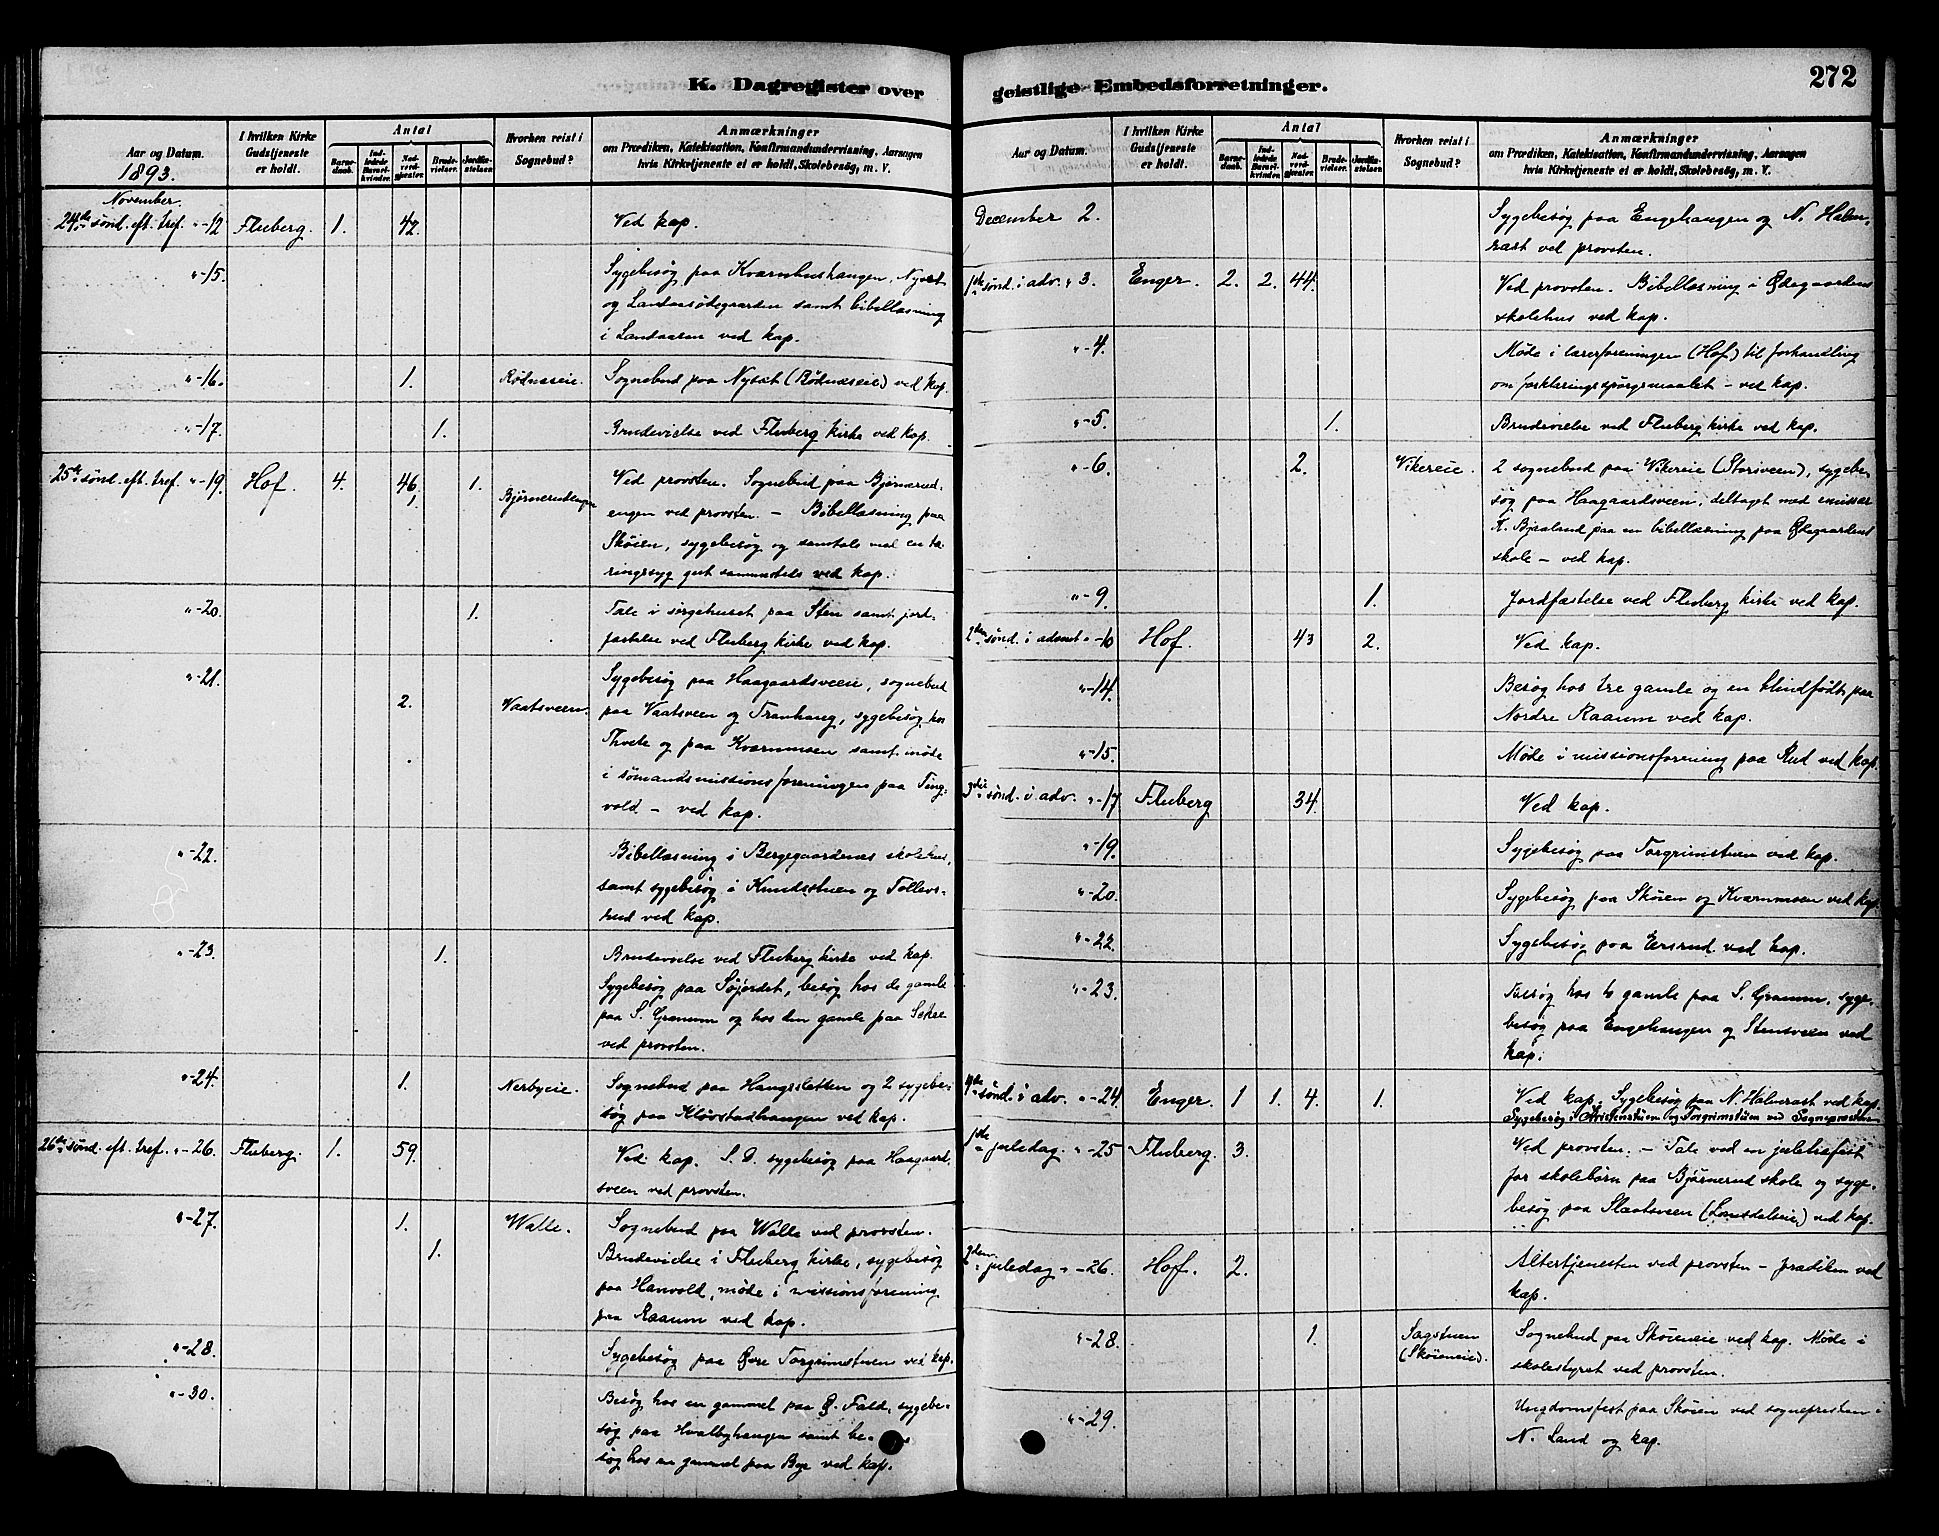 K. Dagregister over
Aar og Datum.
1893.
I hvilken Kirke Gudstjeneste er holdt.
Antal
Barnedaab.
Indledede Barselkvinder.
Nadverdgjester.
Brudevielser.
Jordfæstelser.
Hvorhen reist i Sognebud?
Anmærkninger
om Prædiken, Katekisation, Konfirmandundervisning, Aarsagen
hvis Kirketjeneste ei er holdt, Skolebesøg, m. V.
November.
24de sønd. eft. tref. "-12 Fluberg. 1. 42. Ved kap.
"-15. Sygebesøg paa Kværnhushaugen, Nysæt
og Landaasødegaarden samt bibellæsning
i Landaasen ved kap.
"-16. 1. Rødnæseie. Sognebud paa Nysæt (Rødnæseie) ved kap.
"-17. 1. Brudevielse ved Fluberg kirke ved kap.
25de sønd. eft. tref. "-19. Hof. 4. 46, 1. Bjørnerudengen Ved provsten. Sognebud paa Bjørnerud-
engen ved provsten. – Bibellæsning paa
Skøien, sygebesøg og samtale med en tæ-
ringssyg gut sammesteds ved kap.
"-20. 1. Tale i sørgehuset paa Sten samt jord-
fæstelse ved Fluberg kirke ved kap.
"-21. 2. Vaatsveen. Sygebesøg paa Haagaardsveen, sognebud
paa Vaatsveen og Tranhaug, sygebesøg hos
Thvete og paa Kværnmoen samt møde
i sømandsmissionsforeningen paa Ting-
vold – ved kap.
"-22. Bibellæsning i Bergegaardenes skolehus,
samt sygebesøg i Knudsstuen og Tollevs-
rud ved kap.
"-23. 1. Brudevielse ved Fluberg kirke ved kap.
Sygebesøg paa Søjordet, besøg hos de gamle
paa S. Granum og hos den gamle paa
ved provsten.
"-24. 1. Nerbyeie. Sognebud paa Haugssletten og 2 sygebe-
søg paa Kløvstadhaugen ved kap.
26de sønd. eft. tref. "-26. Fluberg. 1. 59. Ved kap. S. D. sygebesøg paa Haagaard-
sveen ved provsten.
"-27. 1. Walle. Sognebud paa Walle ved provsten.
1. Brudevielse i Fluberg kirke, sygebesøg
paa Hanvold, møde i missionsforening
paa Raaum ved kap.
"-28. Sygebesøg paa Øvre Torgrimstuen ved kap.
"-30. Besøg hos en gammel paa Ø. Fald, sygebe-
søg paa Hvalbyhaugen samt be-
søg hos en gammel paa Bye ved kap.
geistlige Embedsforretninger.
272
Aar og Datum.
I hvilken Kirke Gudstjeneste er holdt.
Antal
Barnedaab.
Indledede Barselkvinder.
Nadverdgjester.
Brudevielser.
Jordfæstelser.
Hvorhen reist i Sognebud?
Anmærkninger
om Prædiken, Katekisation, Konfirmandundervisning, Aarsagen
hvis Kirketjeneste ei er holdt, Skolebesøg, m. V.
December 2. Sygebesøg paa Engehaugen og N. Halm-
rast ved provsten.
1ste sønd. i adv. " 3. Enger. 2. 2. 44. Ved provsten. Bibellæsning i Ødegaardens
skolehus ved kap.
"-4. Møde i lærerforeningen (Hof) til forhandling
om forklaringsspørgsmaalet – ved kap.
"-5. 1. Brudevielse ved Fluberg kirke ved kap.
"-6. 2. Vikereie. 2 sognebud paa Vikereie (Storiveen), sygebe-
søg paa Haagaardsveen, deltaget med emissær
K. Bjaaland paa en bibellæsning paa Ødegaardens
skole – ved kap.
"-9. 1. Jordfæstelse ved Fluberg kirke ved kap.
2den sønd. i advent "-10 Hof. 43 2. Ved kap.
"-14. Besøg hos tre gamle og en blindfødt paa
Nordre Raaum ved kap.
"-15. Møde i missionsforening paa Rud ved kap.
3die sønd. i adv. "-17 Fluberg 34. Ved kap.
"-19. Sygebesøg paa Torgrimstuen ved kap.
"-20. Sygebesøg paa Skøien og Kværnmoen ved kap.
"-22. Sygebesøg paa Ersrud ved kap.
"-23. Besøg hos to gamle paa S. Granum, syge-
besøg paa Engehaugen og Stensveen ved
kap.
4de sønd. i adv. "-24. Enger. 1 1. 4. 1. Ved kap. Sygebesøg paa N. Halmrast ved kap.
Sygebesøg i Kristenstuen og Torgrimstuen ved Sogneprovsten
1ste juledag. "-25 Fluberg. 3. Ved provsten. – Tale ved en juletræfest
for skolebørn paa Bjørnerud skole og syge-
besøg paa Slaatsveen (Lomsdalseie) ved kap.
2den juledag "-26. Hof. 2. Altertjenesten ved provsten – prædiken ved
kap.
"-28. 1. Sagstuen (Skøieneie). Sognebud paa Skøieneie ved kap. Møde i
skolestyret ved provsten.
"-29. Ungdomsfest paa Skøien ved sognepresten i
N. Land og kap.